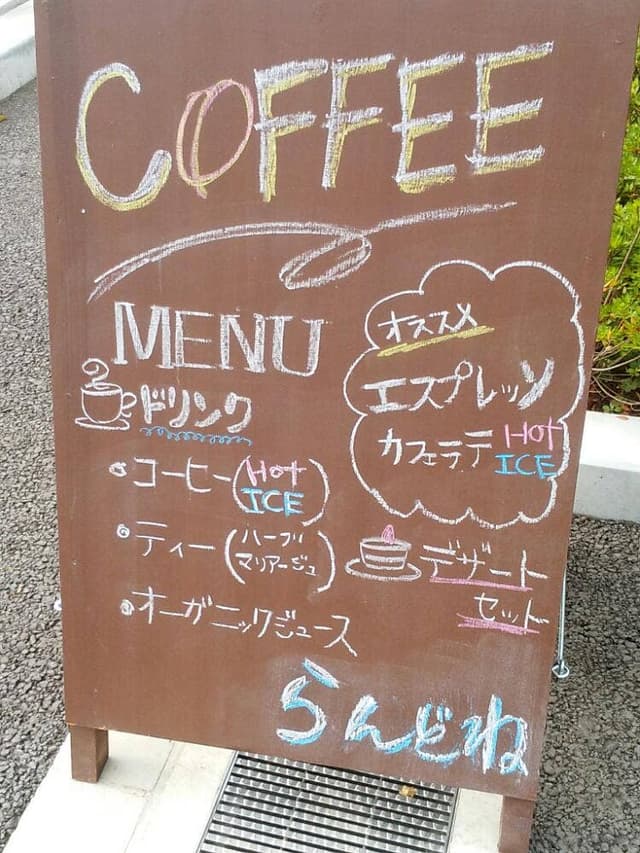 COFFEE
MENU
ドリンク
・コーヒー(HOT
ICE)
・ティー(ハーブ
マリアージュ)
・オーガニックジュース
オススメ
エスプレッソ
カフェラテ HOT
ICE
デザート
セット
らんどね